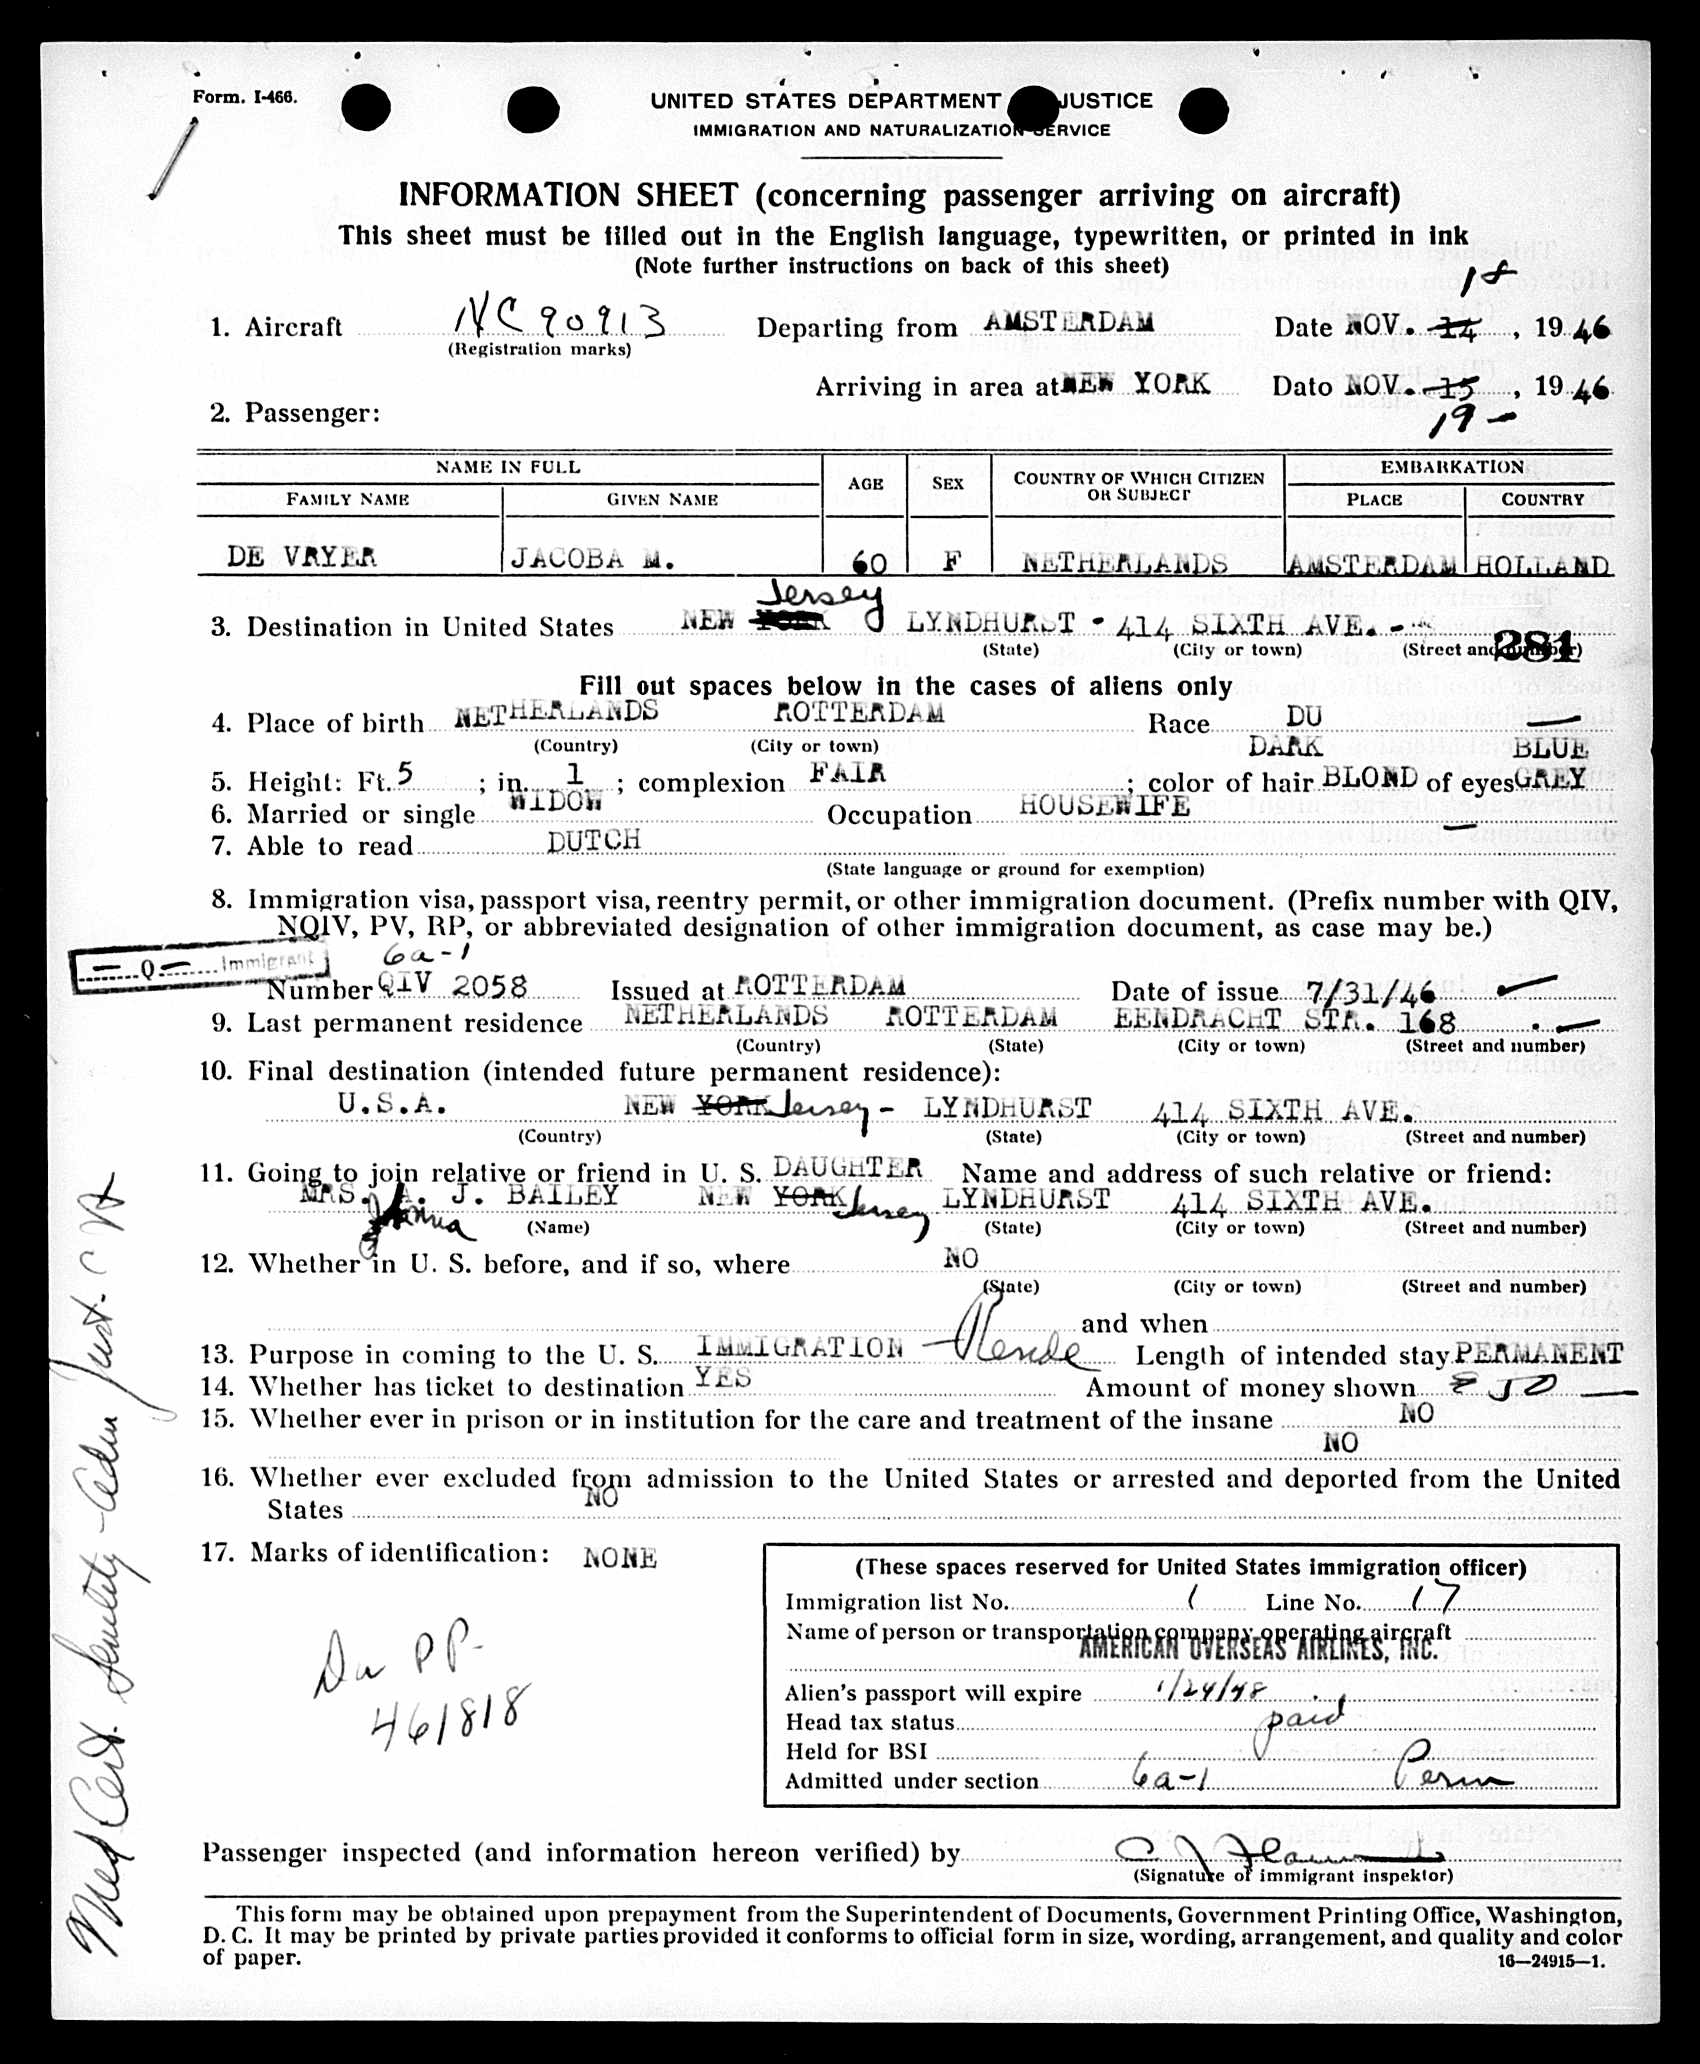 Form. I-466.
UNITED STATES DEPARTMENT JUSTICE
IMMIGRATION AND NATURALIZATION SERVICE
INFORMATION SHEET (concerning passenger arriving on aircraft)
This sheet must be filled out in the English language, typewritten, or printed in ink
(Note further instructions on back of this sheet)
18
1. Aircraft NC 90913 Departing from AMSTERDAM Date NOV. 14, 1946
(Registration marks)
Arriving in area at NEW YORK Date NOV. 15, 1946
19 -
2. Passenger:
NAME IN FULL AGE SEX COUNTRY OF WHICH CITIZEN OR SUBJECT EMBARKATION
FAMILY NAME GIVEN NAME PLACE COUNTRY
DE VRYER JACOBA M. 60 F NETHERLANDS AMSTERDAM HOLLAND
Jersey
3. Destination in United States NEW YORK LYNDHURST - 414 SIXTH AVE. -
(State) (City or town) (Street and number) 281
Fill out spaces below in the cases of aliens only
4. Place of birth NETHERLANDS ROTTERDAM Race DU
(Country) (City or town) DARK BLUE
5. Height: Ft. 5 ; in. 1 ; complexion FAIR ; color of hair BLOND of eyes GREY
6. Married or single WIDOW Occupation HOUSEWIFE
7. Able to read DUTCH
(State language or ground for exemption)
8. Immigration visa, passport visa, reentry permit, or other immigration document. (Prefix number with QIV,
NQIV, PV, RP, or abbreviated designation of other immigration document, as case may be.)
6a-1
Q Immigrant
Number QIV 2058 Issued at ROTTERDAM Date of issue 7/31/46
9. Last permanent residence NETHERLANDS ROTTERDAM EENDRACHT STR. 168
(Country) (State) (City or town) (Street and number)
10. Final destination (intended future permanent residence):
U.S.A. NEW YORK Jersey - LYNDHURST 414 SIXTH AVE.
(Country) (State) (City or town) (Street and number)
11. Going to join relative or friend in U. S. DAUGHTER Name and address of such relative or friend:
MRS. A. J. BAILEY NEW YORK Jersey LYNDHURST 414 SIXTH AVE.
Johanna (Name) (State) (City or town) (Street and number)
12. Whether in U. S. before, and if so, where NO
(State) (City or town) (Street and number)
and when
13. Purpose in coming to the U. S. IMMIGRATION - Reside Length of intended stay PERMANENT
14. Whether has ticket to destination YES Amount of money shown $ 50 -
15. Whether ever in prison or in institution for the care and treatment of the insane NO
NO
16. Whether ever excluded from admission to the United States or arrested and deported from the United
States NO
17. Marks of identification: NONE
(These spaces reserved for United States immigration officer)
Immigration list No. 1 Line No. 17
Name of person or transportation company operating aircraft
AMERICAN OVERSEAS AIRLINES, INC.
Alien's passport will expire 1/24/48
Head tax status paid
Held for BSI
Admitted under section 6a-1 Perm
Du PP-
461818
Med Cert. Senility - Adm Just.
Passenger inspected (and information hereon verified) by
(Signature of immigrant inspektor)
This form may be obtained upon prepayment from the Superintendent of Documents, Government Printing Office, Washington,
D. C. It may be printed by private parties provided it conforms to official form in size, wording, arrangement, and quality and color
of paper. 16—24915-1.